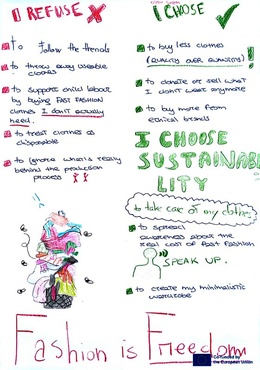 I REFUSE X
to follow the trends
to throw away useable
clothes
to support child labour
by buying FAST FASHION
clothes I don't actually
need.
to treat clothes as
disposable
to ignore what's really
behind the production
process !!
I CHOOSE ✓
to buy less clothes
(QUALITY OVER QUANTITY) !
to donate or sell what
I don't wear anymore
to buy more from
ethical brands
I CHOOSE
SUSTAINABI
LITY
to take care of my clothes
to spread
awareness about the
real cost of fast fashion
SPEAK UP.
to create my minimalistic
wardrobe
Fashion is Freedom
Co-funded by
the European Union